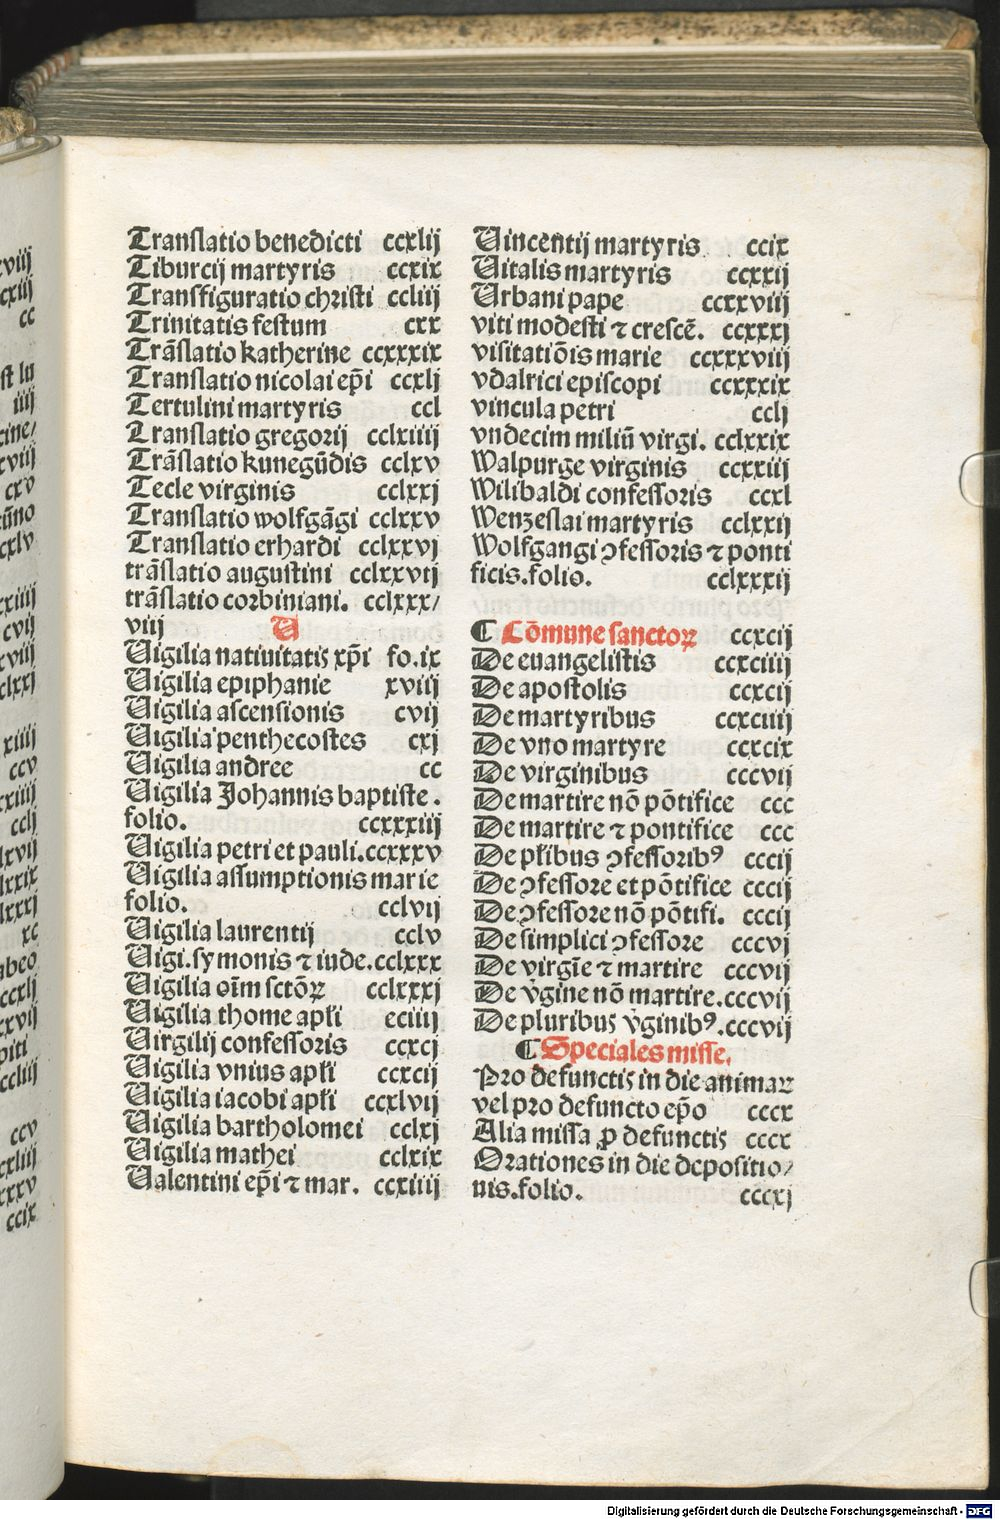 Translatio benedicti ccxlij
Tiburcij martyris ccxix
Transfiguratio christi ccliij
Trinitatis festum cxx
Trãslatio katherine ccxxxix
Translatio nicolai ep̃i ccxlj
Tertulini martyris ccl
Translatio gregorij cclxiiij
Trãslatio kunegũdis cclxv
Tecle virginis cclxxj
Translatio wolfgãgi cclxxv
Translatio erhardi cclxxvj
trãslatio augustini cclxxvij
trãslatio corbiniani. cclxxx/
viij
V
Vigilia natiuitatis xp̃i fo.ix
Vigilia epiphanie xviij
Vigilia ascensionis cvij
Vigilia penthecostes cxj
Vigilia andree cc
Vigilia Johannis baptiste.
folio. ccxxxiij
Vigilia petri et pauli.ccxxxv
Vigilia assumptionis marie
folio. cclvij
Vigilia laurentij cclv
Vigi.symonis ⁊ iude.cclxxx
Vigilia oĩm sctõꝝ cclxxxj
Vigilia thome apł̃i cciiij
Virgilij confessoris ccxcj
Vigilia vnius apł̃i ccxcij
Vigilia iacobi apł̃i ccxlvij
Vigilia bartholomei cclxj
Vigilia mathei cclxix
Valentini ep̃i ⁊ mar. ccxiiij
Vincentij martyris ccix
Vitalis martyris ccxxij
Vrbani pape ccxxviij
viti modesti ⁊ crescẽ. ccxxxj
visitatiõis marie ccxxxviij
vdalrici episcopi ccxxxix
vincula petri cclj
vndecim miliũ virgi. cclxxix
Walpurge virginis ccxxiij
Wilibaldi confessoris ccxl
Wenzeslai martyris cclxxij
Wolfgangi ꝯfessoris ⁊ ponti
ficis.folio. cclxxxij
¶ Cõmune sanctoꝝ ccxcij
De euangelistis ccxciiij
De apostolis ccxcij
De martyribus ccxciiij
De vno martyre ccxcix
De virginibus cccvij
De martire nõ põtifice ccc
De martire ⁊ pontifice ccc
De płibus ꝯfessoribꝰ cccij
De ꝯfessore et põtifice cccij
De ꝯfessore nõ põtifi. cccij
De simplici ꝯfessore cccvj
De virgĩe ⁊ martire cccvij
De v̓gine nõ martire.cccvij
De pluribus v̓ginibꝰ.cccvij
¶ Speciales misse.
Pro defunctis in die animaꝝ
vel pro defuncto ep̃o cccx
Alia missa ꝓ defunctis cccx
Orationes in die depositio/
nis.folio. cccxj
Digitalisierung gefördert durch die Deutsche Forschungsgemeinschaft - DFG